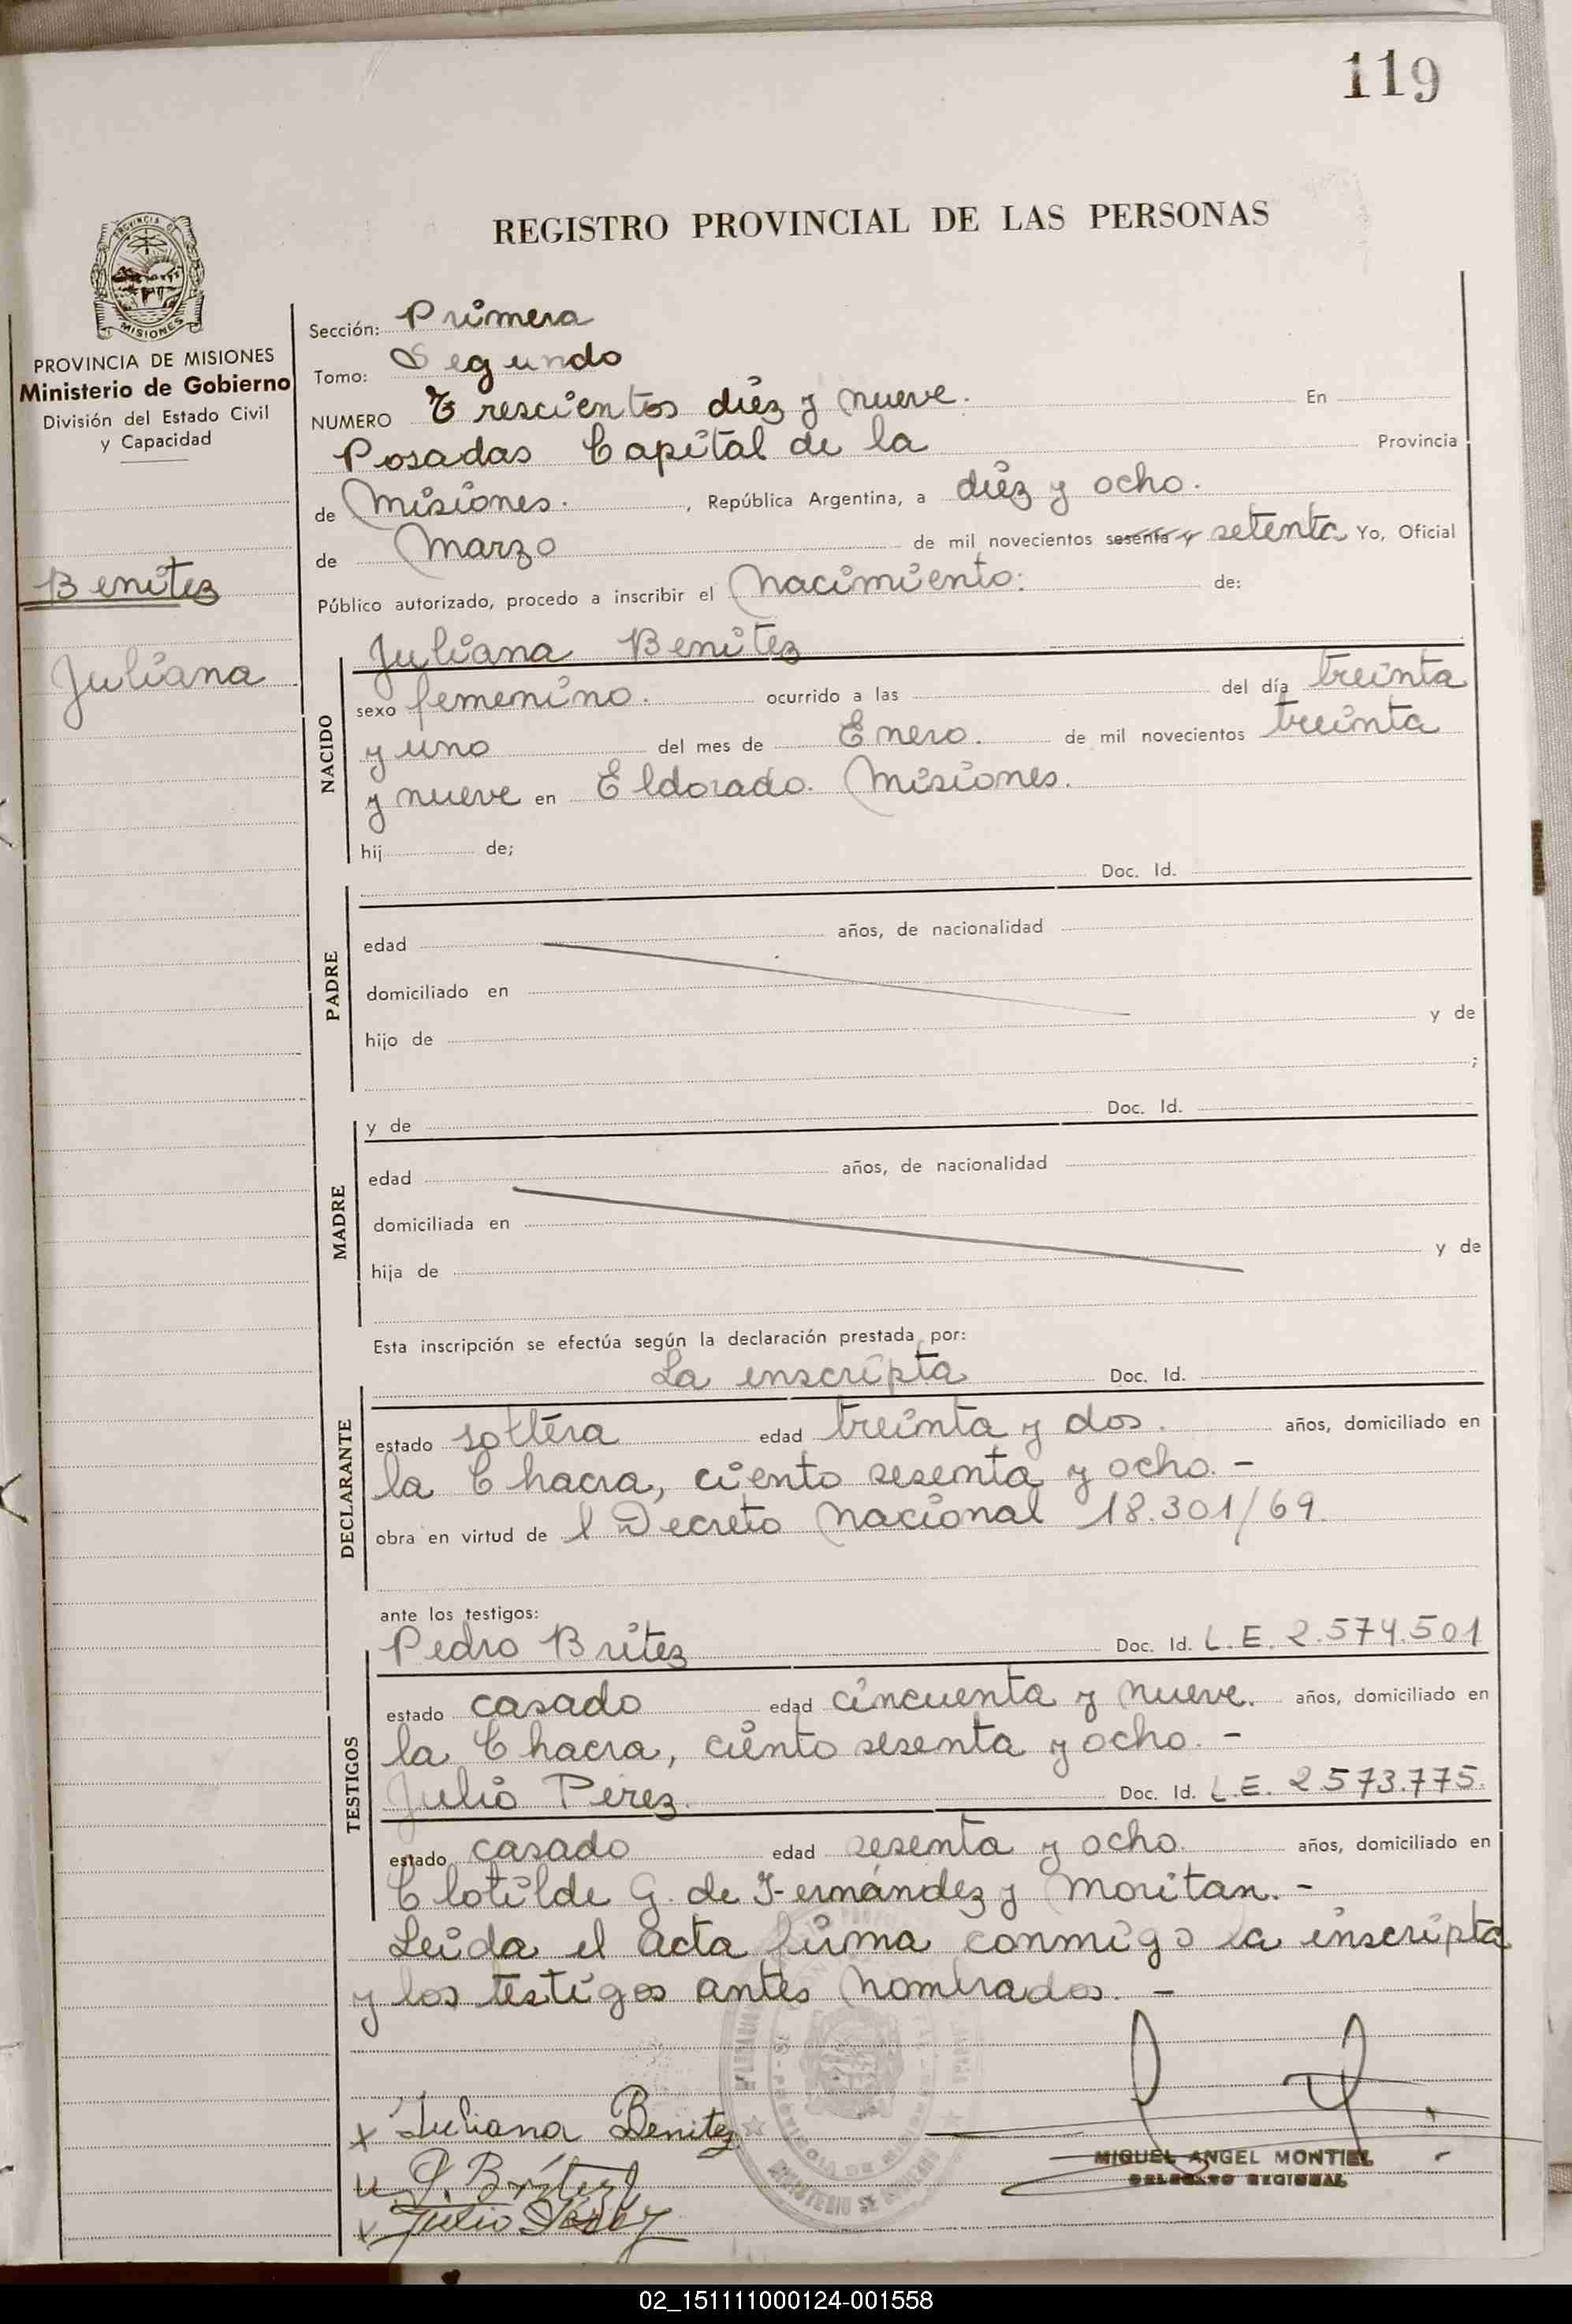 119
REGISTRO PROVINCIAL DE LAS PERSONAS
MISIONES
PROVINCIA DE MISIONES
Ministerio de Gobierno
División del Estado Civil
y Capacidad
Benitez
Juliana
Sección: Primera
Tomo: Segundo
NUMERO Trescientos diéz y nueve. En
Posadas Capital de la Provincia
de Misiones. , República Argentina, a diéz y ocho.
de Marzo de mil novecientos sesenta y setenta Yo, Oficial
Público autorizado, procedo a inscribir el Nacimiento: de:
Juliana Benitez
NACIDO
sexo femenino. ocurrido a las del día treinta
y uno del mes de Enero. de mil novecientos treinta
y nueve en Eldorado. Misiones.
hij de;
Doc. Id.
PADRE
edad años, de nacionalidad
domiciliado en
hijo de y de
;
MADRE
y de Doc. Id.
edad años, de nacionalidad
domiciliada en
hija de y de
Esta inscripción se efectúa según la declaración prestada por:
La inscripta Doc. Id.
DECLARANTE
estado soltera edad treinta y dos. años, domiciliado en
la Chacra, ciento sesenta y ocho. -
obra en virtud de l Decreto Nacional 18.301/69.
ante los testigos:
Pedro Britez Doc. Id. L.E. 2.574.501
TESTIGOS
estado casado edad cincuenta y nueve. años, domiciliado en
la Chacra, ciento sesenta y ocho. -
Julio Perez. Doc. Id. L.E. 2.573.775.
estado casado edad sesenta y ocho. años, domiciliado en
Clotilde G. de Fernández y Moritan. -
Leida el acta firma conmigo la inscripta
y los testigos antes nombrados. -
x Juliana Benitez
P. Britez
x Julio Perez
MIGUEL ANGEL MONTIEL
DELEGADO REGIONAL
02_151111000124-001558